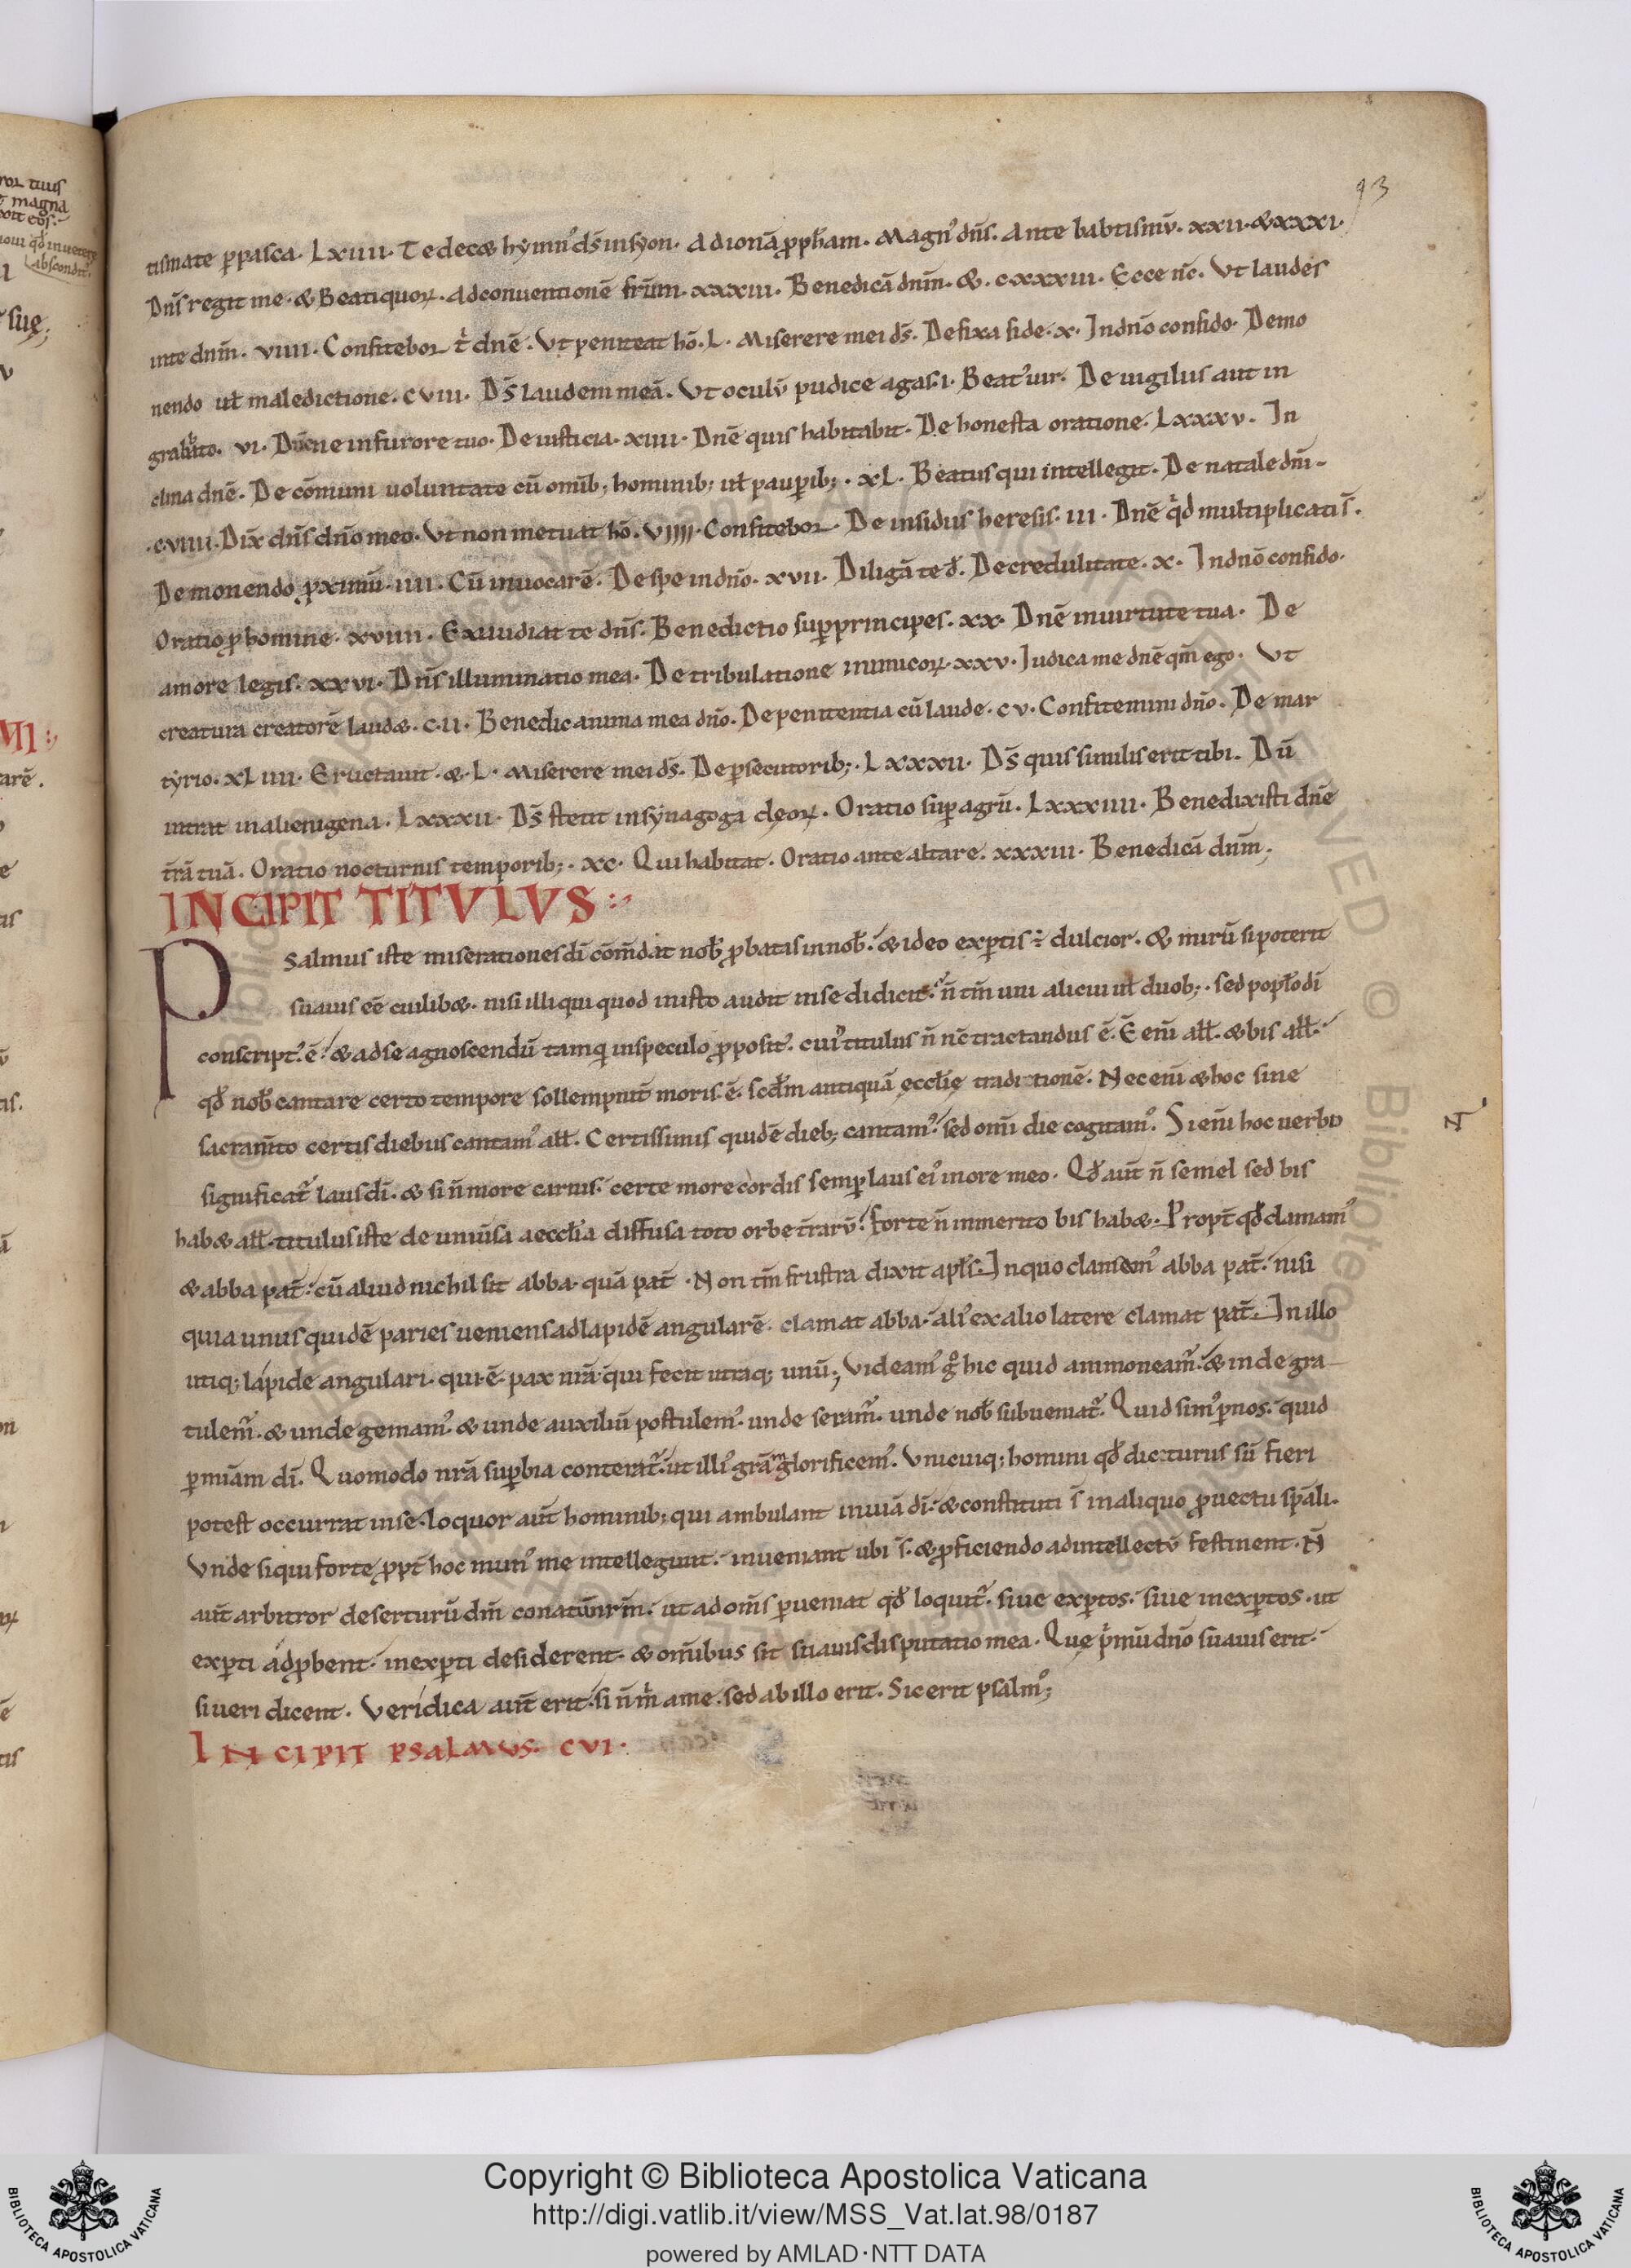 93
tismate ꝑ pasca. LXIIII. Te decet hymn᷒ d̄s in syon. Ad ionā ꝓph̄am. Magn᷒ dn̄s. Ante babtismū. XXII. & XXXI.
Dn̄s regit me. & Beati quoꝝ. Ad conuentionē frūm. XXXIII. Benedicā dnm̄. &. CXXXIII. Ecce nc̄. Vt laudes
inte dnm̄. VIIII. Confitebor t̄ dn̄e. Vt peniteat hō. L. Miserere mei d̄s. De fixa fide. X. In dn̄o confido. De mo
nendo uł maledictione. CVIII. D̄s laudem meā. Vt oculū pudice agas. I. Beat᷒ uir. De uigiliis aut in
grabato. VI. Dn̄e ne in furore tuo. De iusticia. XIIII. Dn̄e quis habitabit. De honesta oratione. LXXXV. In
clina dn̄e. De cōmuni uoluntate cū omīb; hominib; uł pauꝑib;. XL. Beatus qui intellegit. De natale dn̄i.
CVIIII. Dix̄ dn̄s dn̄o meo. Vt non metuat hō. VIIII. Confitebor. De insidiis heresis. III. Dn̄e qd̄ multiplicatis̄.
De monendo ꝓximū. IIII. Cū inuocarē. De spe in dn̄o. XVII. Diligā te d̄. De credulitate. X. In dn̄o confido.
Oratio ꝓ homine. XVIIII. Exaudiat te dn̄s. Benedictio suꝑ principes. XX. Dn̄e in uirtute tua. De
amore legis. XXVI. Dn̄s illuminatio mea. De tribulatione inimicoꝝ. XXV. Iudica me dn̄e qm̄ ego. Vt
creatura creatorē laudet. CII. Benedic anima mea dn̄o. De penitentia cū laude. CV. Confitemini dn̄o. De mar
tyrio. XLIIII. Eructauit. &. L. Miserere mei d̄s. De ꝑsecutorib;. LXXXII. D̄s quis similis erit tibi. Dū
intrat in alienigena. LXXXII. D̄s stetit in synagoga deoꝝ. Oratio suꝑ agrū. LXXXIIII. Benedixisti dn̄e
tr̄ā tuā. Oratio nocturnis temporib;. XC. Qui habitat. Oratio ante altare. XXXIII. Benedicā dnm̄;
INCIPIT TITVLVS
Psalmus iste miserationes dī cōm̄dat nob̄ ꝓbatas in nob̄. & ideo exꝑtis ÷ dulcior. & mirū si poterit
suauis eē cuilibet. nisi illi qui quod in isto audit in se didicit. n̄ tm̄ uni alicui uł duob;. sed popło dī
conscript᷒ ē. & ad se agnoscendū tamq̄ in speculo ꝓposit᷒. cui᷒ titulus n̄ nc̄ tractandus ē. Ē enī alł. & bis alł.
qd̄ nob̄ cantare certo tempore sollempnit̄ moris ē. scdm̄ antiquā ęcclię traditionē. Nec enī & hoc sine
sacram̄to certis diebus cantam᷒ alł. Certissimis quidē dieb; cantam᷒. sed omī die cogitam᷒. Si enī hoc uerbo
significat᷑ laus dī. & si n̄ more carnis. certe more cordis semꝑ laus ei᷒ in ore meo. Qd̄ aut̄ n̄ semel sed bis
habet alł. titulus iste de uniūsa aecclīa diffusa toto orbe tr̄arū. forte n̄ inmerito bis habet. Propt̄ qd̄ clamam᷒
& abba pat̄. cū aliud nichil sit abba. quā pat̄. Non tm̄ frustra dixit apłs. In quo clamam᷒ abba pat̄. nisi
quia unus quidē paries ueniens ad lapidē angularē. clamat abba. ali᷒ ex alio latere clamat pat̄. In illo
utiq; lapide angulari. qui ē pax nrā. qui fecit utraq; unū; Videam᷒ g̊ hic quid ammoneam᷑. & inde gra
tulem᷑. & unde gemam᷒. & unde auxiliū postulem᷒. unde seram᷑. unde nob̄ subueniat᷑. Quid sim᷒ ꝑ nos. quid
ꝑ miām dī. Quomodo nrā suꝑbia conterat᷑. ut illi᷒ grā glorificem᷑. Vnicuiq; homini qd̄ dicturus sū fieri
potest occurrat in se. Loquor aut̄ hominib; qui ambulant in uia dī. & constituti s̄ in aliquo ꝓuectu sp̄ali.
Vnde si qui forte ꝓpt̄ hoc min᷒ me intellegunt. inueniant ubi s̄. & ꝓficiendo ad intellectū festinent. N̄
aut̄ arbitror deserturū dm̄ conatū nr̄m. ut ad omīs ꝑueniat qd̄ loquit᷑. siue exꝑtos. siue inexꝑtos. ut
exꝑti adꝓbent. inexꝑti desiderent. & omībus sit suauis disputatio mea. Quę p̄mū dn̄o suauis erit.
si ueri dicent. Veridica aut̄ erit. si n̄ m̄ a me. sed ab illo erit. Sic erit psalm᷒;
INCIPIT PSALMVS. CVI.
Copyright © Biblioteca Apostolica Vaticana
http://digi.vatlib.it/view/MSS_Vat.lat.98/0187
powered by AMLAD·NTT DATA
BIBLIOTECA APOSTOLICA VATICANA
BIBLIOTECA APOSTOLICA VATICANA